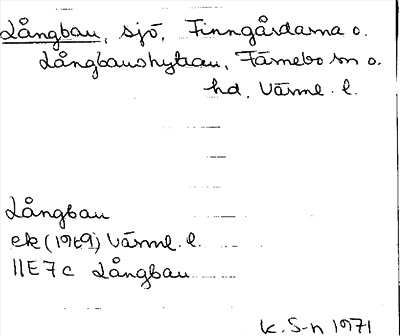 Långbau, sjö, Finngårdarna o.
Långbaushyttau, Färnebo sn o.
hd, Värml. l.
Långbau
ek (1969) Värml. l.
11E7c Långbau
K. S-n 1971